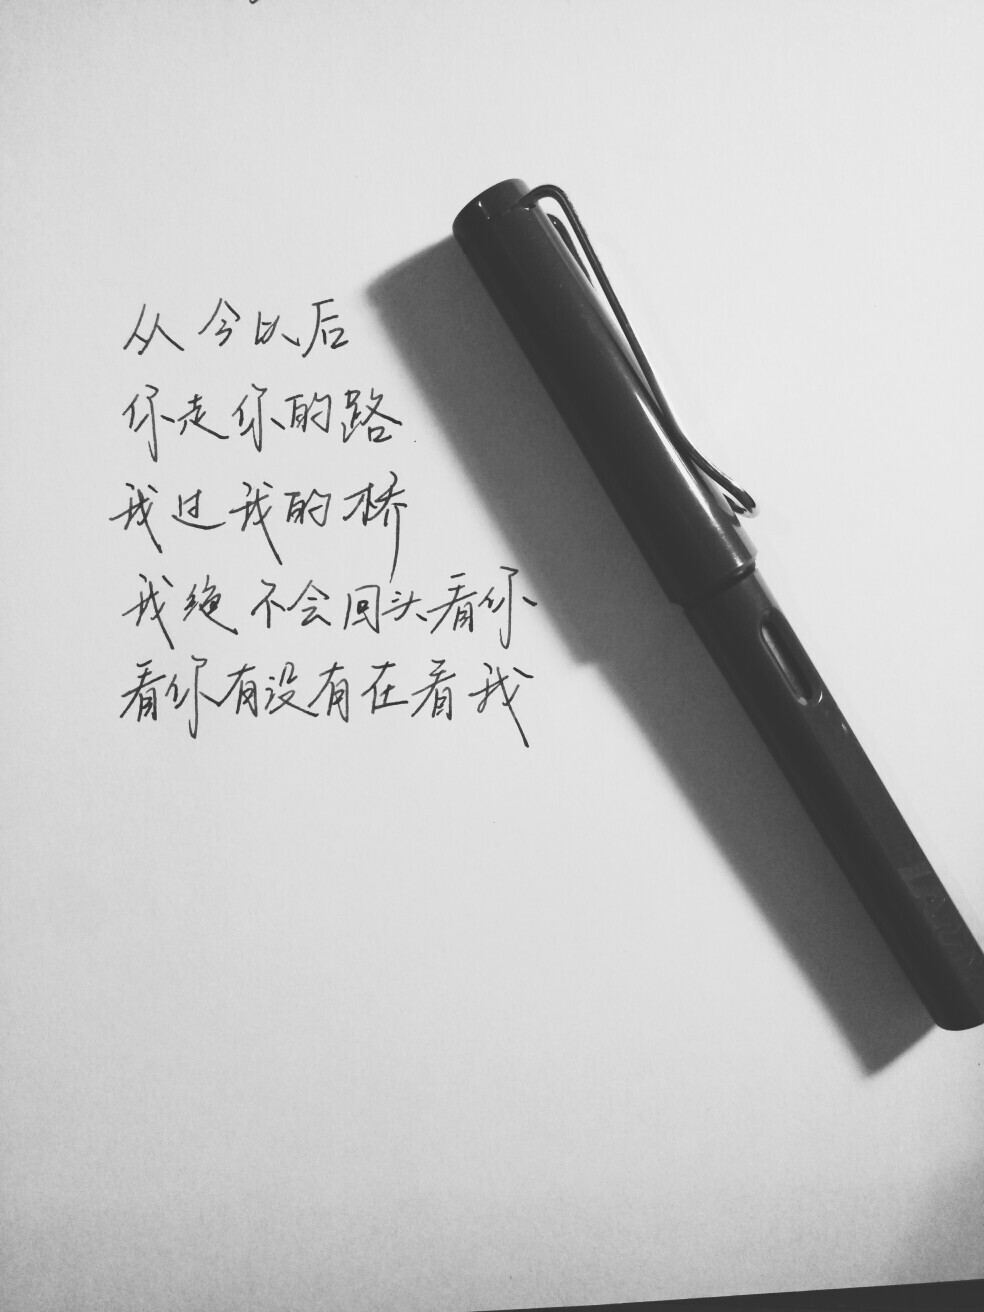 从今以后
你走你的路
我过我的桥
我绝不会回头看你
看你有没有在看我
LAMY